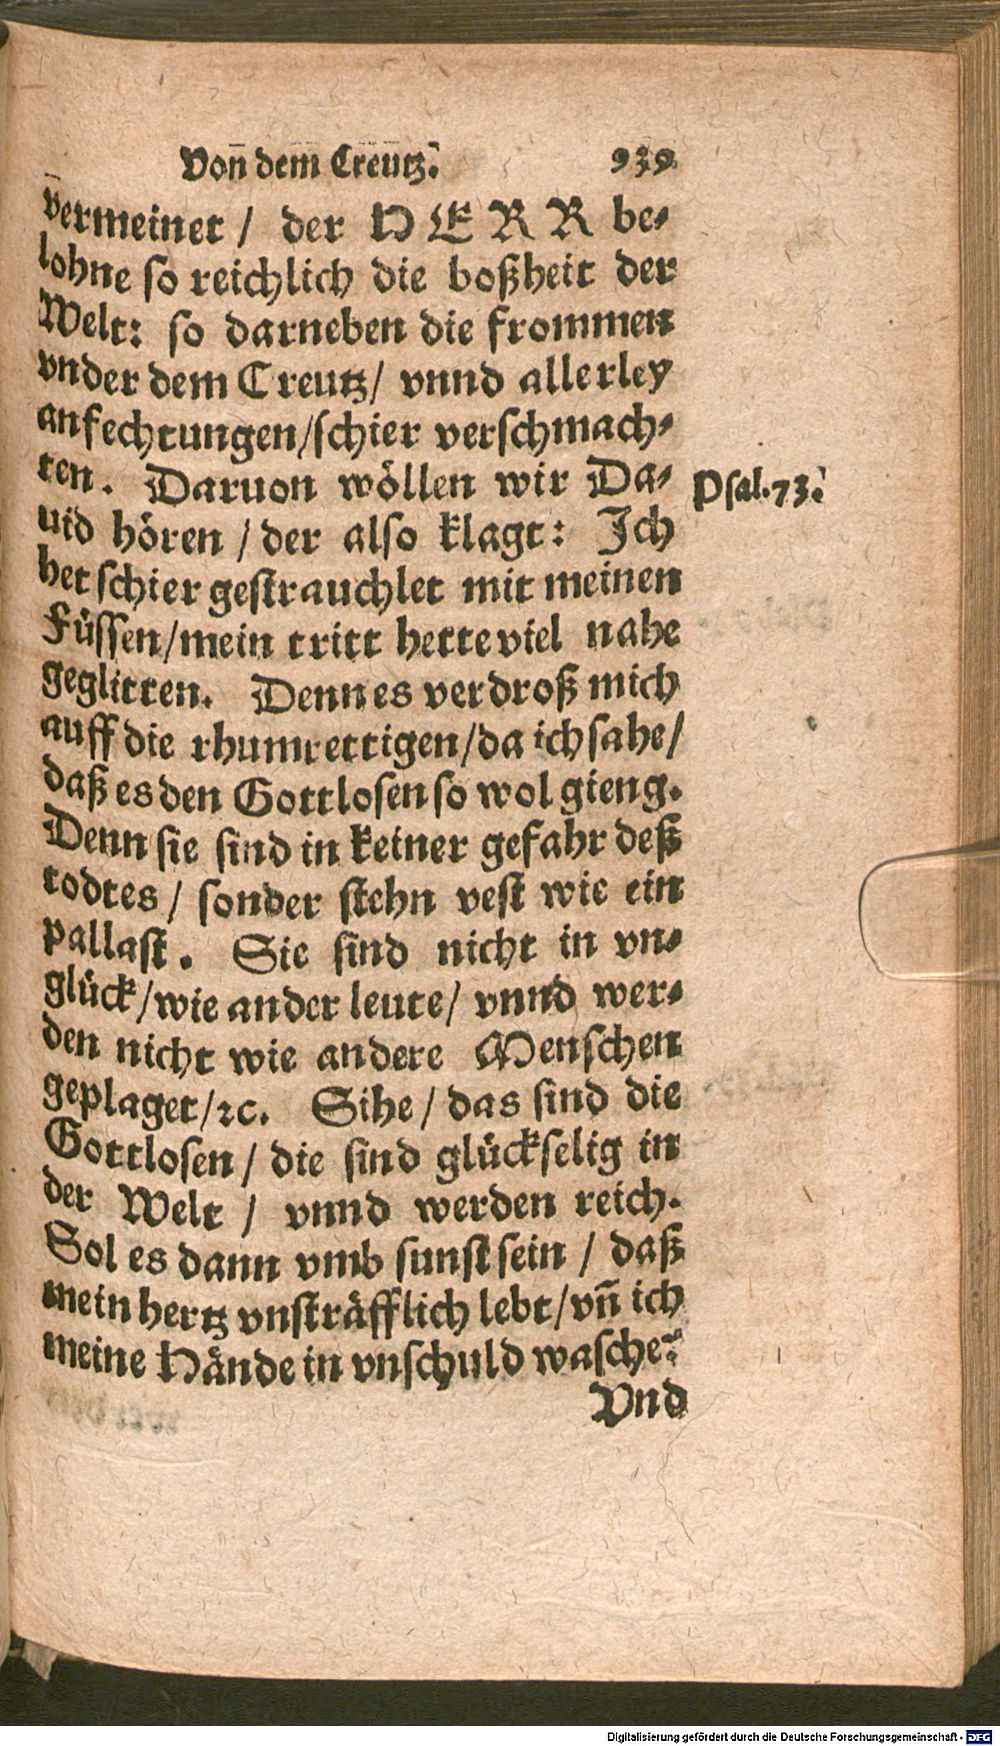 Von dem Creutz. 939
vermeinet / der HERR be-
lohne so reichlich die boßheit der
Welt: so darneben die frommen
vnder dem Creutz / vnnd allerley
anfechtungen / schier verschmach-
ten. Daruon wöllen wir Da-
uid hören / der also klagt: Ich
het schier gestrauchlet mit meinen
Füssen / mein tritt hette viel nahe
geglitten. Denn es verdroß mich
auff die rhumrettigen / da ich sahe /
daß es den Gottlosen so wol gieng.
Denn sie sind in keiner gefahr deß
todtes / sonder stehn vest wie ein
pallast. Sie sind nicht in vn-
glück / wie ander leute / vnnd wer-
den nicht wie andere Menschen
geplaget / ꝛc. Sihe / das sind die
Gottlosen / die sind glückselig in
der Welt / vnnd werden reich.
Sol es dann vmb sunst sein / daß
mein hertz vnsträfflich lebt / vñ ich
meine Hände in vnschuld wasche?
Vnd
Psal. 73.
Digitalisierung gefördert durch die Deutsche Forschungsgemeinschaft - DFG